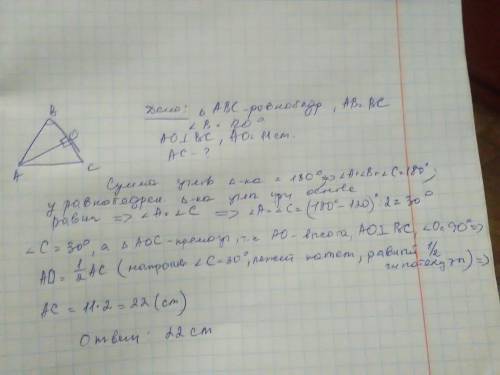 B
Дано: △ ABC-равнобедр, AB=BC
∠B = 120°
AO⊥BC, AO=11см.
AC-?
O
A
C
Сумма углов △-ка = 180° => ∠A+∠B+∠C=180°,
у равнобедрен △-ка углы при основе
равны => ∠A=∠C => ∠A=∠C=(180°-120°) 2=30°
∠C=30°, а △AOC-прямоуг, т.к AO-высота, AO⊥BC, ∠O=90°=>
AO=1/2 AC (напротив ∠C=30°, лежит катет, равный 1/2
гипотенузы)=>
AC = 11·2=22(см)
Ответ: 22 см